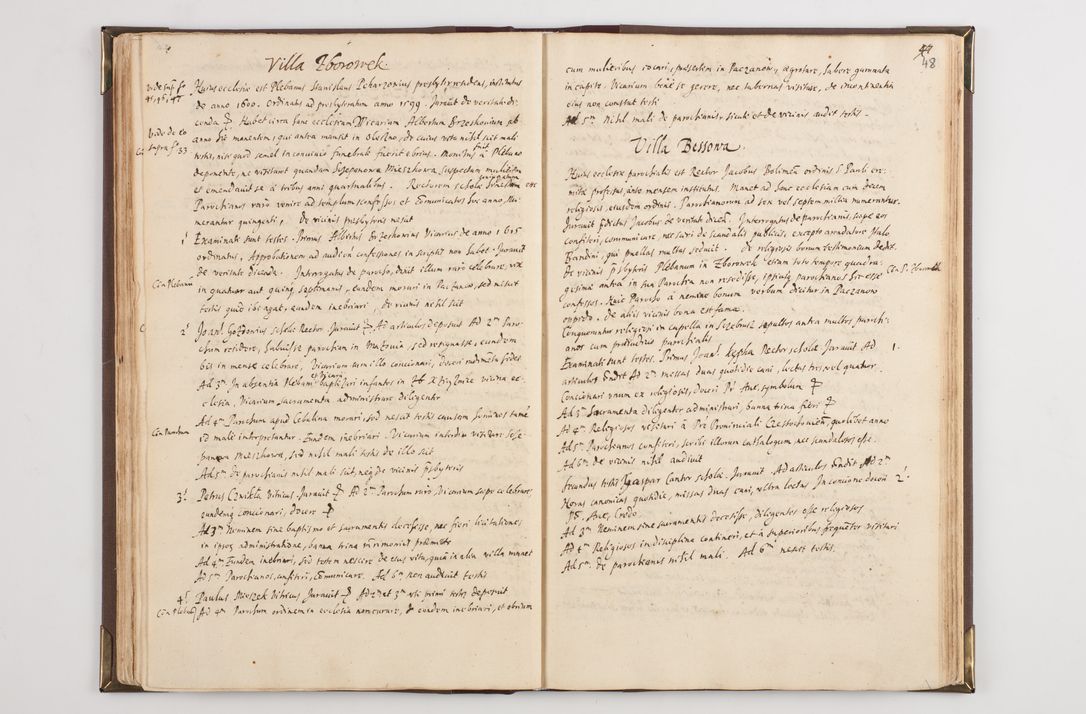 Villa Zborowek.
Vide sup. fo
45. 46. 47
Huius ecclesiæ est Plebanus Stanislaus Pekarzonius presbyter residens, institutus
de anno 1600. Ordinatus ad presbyteratum anno 1599. Jurauit de veritate di-
cenda. Habet circa hanc ecclesiam Vicarium Albertum Brzeskonium ab
Vide de eo
supra f. 33
anno hic manentem, qui antea mansit in Oleszno, de cuius vita nihil scit mali
testis, nisi quod semel in conuiuio funebrali fuerit ebrius. Monitus fuit à Plebano
deponente, ne visitaret quandam Szczepanowa Mieszkowa, suspectam mulierem
et emendauit se à tribus anni quartualibus. Rectorem scholæ
Parochianos raro venire ad templum confessos et communicatos hoc anno, Nu-
merantur quingenti, de vicinis presbyteris nescit
1 Examinati sunt testes. Primus Albertus Brzeskonius Vicarius de anno 1615
ordinatus, Approbationem ad audien. confessiones in scriptis non habet. Jurauit
de veritate dicenda. Interrogatus de parocho, dixit illum raro celebrare, vix
Con Plebanū
in quatuor aut quinq, septimanis, eundem morari in Paczanow, sed nescit
testis quid ibi agat, eundem inebriari, de vicinis nihil scit
2 Joan. Gozdonius scholæ Rector Jurauit, Ad articulos deposuit Ad 2m Paro-
chum residere, habuisse parochiam in Mazouia, sed resignasse, eundem
bis in mense celebrare, Vicarium cum illo concionari, Doceri rudimenta fidei
Ad 3m In absentia Plebani et Vicarii baptizari infantes in vicina ec-
clesia, Vicarium sacramenta administrare diligenter
Con Plebanum
Ad 4m Parochum apud morari, sed nescit testis causam homines tamē
id mali interpretantur. Eundem inebriari. Vicarium interdiu visitare sæpe
Mieszkowa, sed nihil mali testis de illo scit
Ad 5m De parochianis nihil mali scit, neq de vicinis presbyteris
3 Petrus Czwikla Vitricus, Jurauit Ad 2m Parochum raro, Vicarium sæpe celebrare
eundemq concionari, docere
Ad 3m Neminem sine baptismo et sacramentis decessisse, nec fieri licitationes
in ipsoq administratione, banna trina matrimonii præmitti
Ad 4m Eundem inebriari, sed testem nescire de eius vita, quia in alia villa manet
Ad 5m Parochianos confiteri, communicare. Ad 6m non audiuit testis
4 Paulus Mieszek Vitricus, Jurauit Ad 2m et 3m vti primus testis deposuit
Con Plebanū Ad 4m Parochum ordinem in ecclesia non curare, et eundem inebriari, et ebrium
47
48
cum mulieribus, præsertim in Paczanow, ægrotare, habere gummata
in capite. Vicarium bene se gerere, nec tabernas visitare, de incontinentia
eius non constat testi
Ad 5m Nihil mali de parochianis, sicuti et de vicinis audit testis.
Villa Bessowa
Huius ecclesiæ parochialis est Rector Jacobus ordinis S. Pauli ere-
mitæ professus, ante mensem institutus. Manet ad hanc ecclesiam cum decem
religiosis, eiusdem ordinis. Parochianorum ad sex vel septem millia numerantur.
Jurauit pdictus Jacobus de veritate dicen. Interrogatus de parochianis, sæpe eos
Confiteri, communicare, nec scire de scandalis publicis, excepto arendatore
Brandini, qui puellas multas seducit. De religiosis bonum testimonium dedit.
De vicinis presbyteris Plebanum in Zborowek etiam toto tempore quadra-
Con P. Zborowek
gesimæ antea in sua Parochia non resedisse, ipsiusq parochianos hic esse
confessos. Huic Parocho à nemine bonum verbum dicitur in Paczanow
oppido. De aliis vicinis bona est fama.
Conqueruntur religiosi in capella in Szczebusz sepultos antea multos, parochi-
anos cum præiudicio parochialis
1. Examinati sunt testes. Primus, Joan. Rector scholæ Jurauit Ad
articulos respondit Ad 2m missas duas quotidie cani, lectas tres vel quatuor
Concionari vnum ex religiosis, doceri Pr Aue, symbolum
Ad 3m Sacramenta diligenter administrari, banna trina fieri
Ad 4m Religiosos visitari à Pre Prouinciali Czestochouien, quolibet anno
Ad 5m Parochianos confiteri, scribi illorum cathalogum nec scandalosos esse.
Ad 6m De vicinis nihil audiuit
Secundus testis Gaspar Cantor scholæ. Jurauit. Ad articulos respondit Ad 2m
2 Horas canonicas quotidie, missas duas cani, vltra lectas In concione doceri
Pr, Aue, Credo
Ad 3m Neminem sine sacramentis decessisse, diligentes esse religiosos
Ad 4m Religiosos in disciplina contineri, et à superioribus frequenter visitari
Ad 5m de parochianis nihil mali. Ad 6m nescit testis.